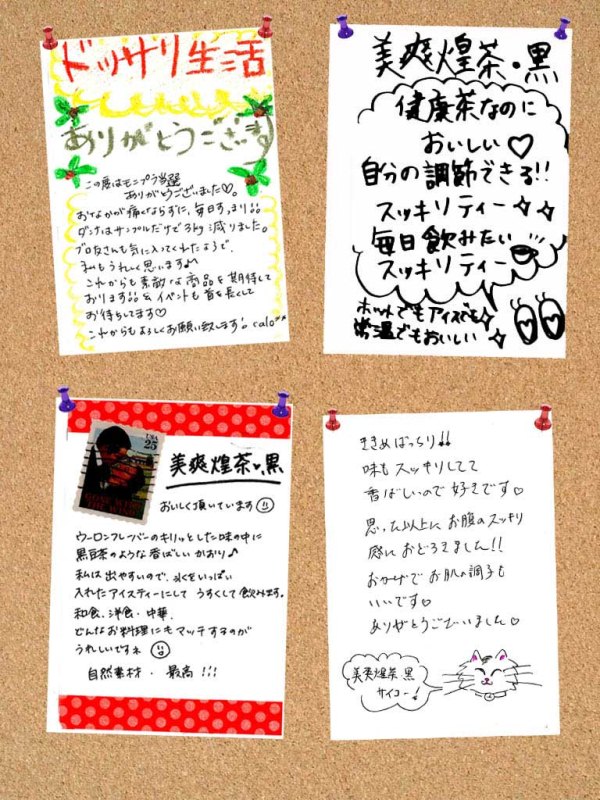 ドッサリ生活
ありがとうございます
この度はモニプラ当選
ありがとうございました♡。
おなかが痛くならずに、毎日すっまり!!
ダンナはサンプルだけで3kg減りました。
ブロ友さんも気に入ってくれたようで、
私もうれしく思います♪
これからも素敵な商品を期待して
おります!!& イベントも首を長くして
お待ちしてます♡
これからもよろしくお願い致します! calo**
美爽煌茶・黒
健康茶なのに
おいしい♡
自分の調節できる!!
スッキリティー
毎日飲みたい
スッキリティー
ホットでもアイスでも
常温でもおいしい
USA
25
美爽煌茶・黒
おいしく頂いています
ウーロンフレーバーのキリッとした味の中に
黒豆茶のような香ばしいかおり♪
私は出やすいので、氷をいっぱい
入れたアイスティーにして うすくして飲みます。
和食、洋食・中華、
どんなお料理にもマッチするのが
うれしいですネ
自然素材・最高!!!
ききめばっちり!!
味もスッキリしてて
香ばしいので好きです♡
思った以上にお腹のスッキリ
感におどろきました!!
おかげでお肌の調子も
いいです♡
ありがとうございました♡
美爽煌茶・黒
サイコー!